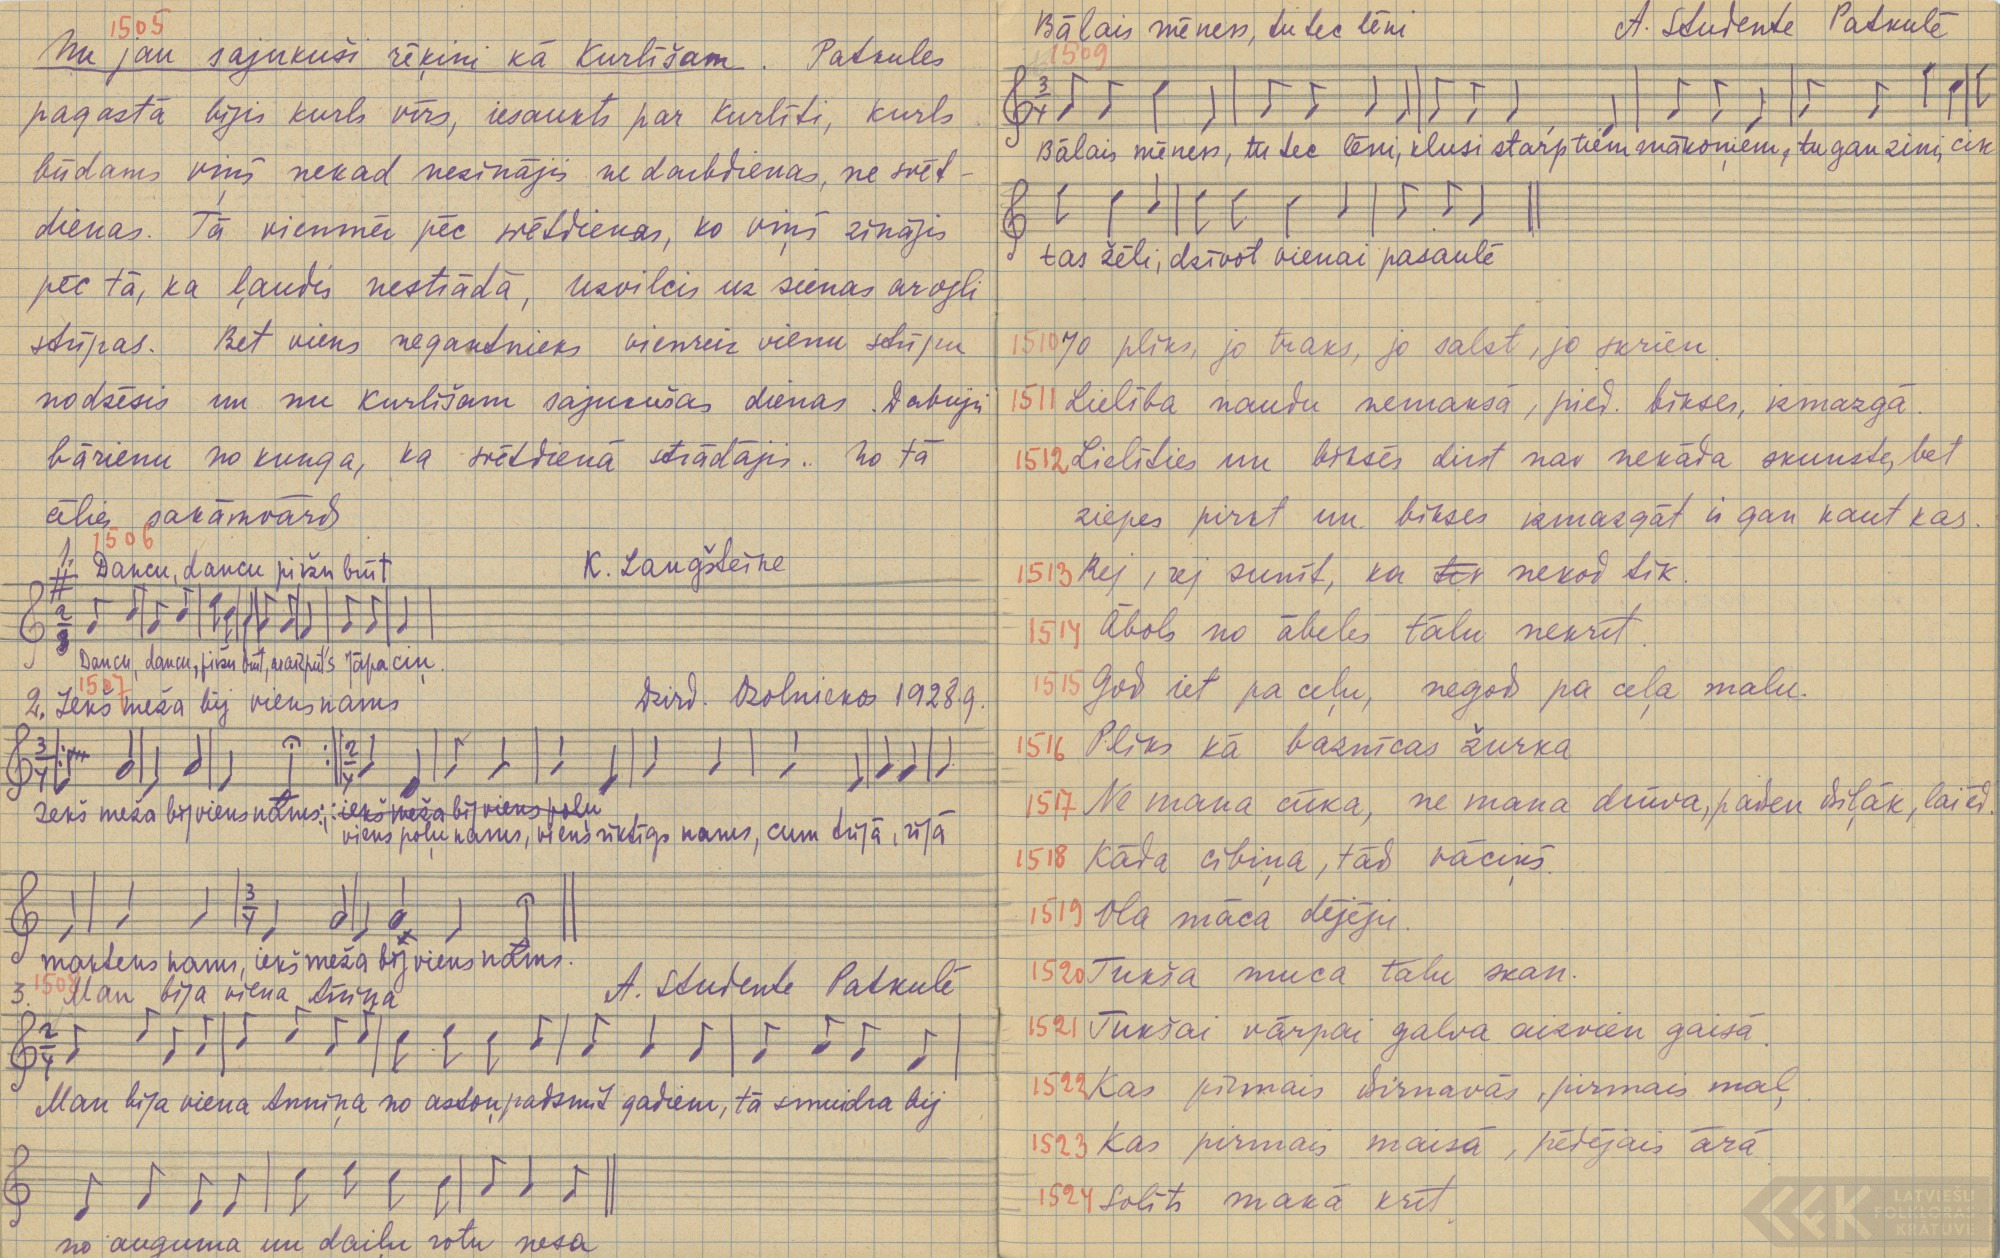 1505
Nu jau sajukuši rēķini kā Kurlīšam. Patkules
pagastā bijis kurls vīrs, iesaukts par Kurlīti, kurls
būdams viņš nekad nezinājis ne darbdienas, ne svēt-
dienas. Tā vienmēr pēc svētdienas, ko viņš zinājis
pēc tā, ka ļaudis nestrādā, uzvilcis uz sienas ar ogli
strīpas. Bet viens negantnieks vienreiz vienu strīpu
nodzēsis un nu Kurlīšam sajukušas dienas. Dabujis
bārienu no kunga, ka svētdienā strādājis.. No tā
cēlies sakāmvārds
1506
1. Dancu, dancu piržu būt K. Langšteine
2/8
Dancu, dancu, piržu būt,
1507
2. Iekš meža bij viens nams Dzird. Ozolniekos 1928.g.
3/4 2/4
Iekš meža bij viens nams: iekš meža bij viens poļu
viens poļu nams, viens riktīgs nams, cum trījā, rijā
3/4
maktens nams, iekš meža bij viens nams.
1508
3. Man bija viena Anniņa A. Studente Patkulē
2/4
Man bija viena Anniņa no astoņpadsmit gadiem, tā smuidra bij
no auguma un daiļu rotu nesa
Bālais mēness, tu tec lēni A. Studente Patkulē
1509
3/4
Bālais mēness, tu tec lēni, klusi starp tiem mākoņiem, tu gan zini, cik
tas žēli, dzīvot vienai pasaulē
1510 Jo pliks, jo traks, jo salst, jo skrien.
1511 Lielība naudu nemaksā, pied. bikses, izmazgā.
1512 Lielīties un biksēs dirst nav nekāda skunste, bet
ziepes pirkt un bikses izmazgāt ir gan kaut kas.
1513 Rej, rej sunīt, ka tev nekod tik.
1514 Ābols no ābeles tālu nekrīt.
1515 God iet pa ceļu, negod pa ceļa malu.
1516 Pliks kā baznīcas žurka
1517 Ne mana cūka, ne mana druva, padzen dziļāk, lai ēd.
1518 Kāda cibiņa, tād vāciņš.
1519 Ola māca dējēju.
1520 Tukša muca tālu skan.
1521 Tukšai vārpai galva aizvien gaisā.
1522 Kas pirmais dzirnavās, pirmais maļ.
1523 Kas pirmais maisā, pēdējais ārā.
1524 Solīts makā krīt.
LATVIEŠU
FOLKLORAS
KRĀTUVE